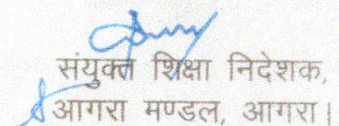 संयुक्त शिक्षा निदेशक,
आगरा मण्डल, आगरा।